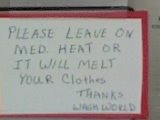 PLEASE LEAVE ON
MED. HEAT OR
IT WILL MELT
YOUR Clothes
THANKS
WASH WORLD